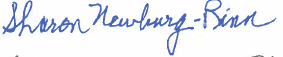 Sharon Newburg-Rinn